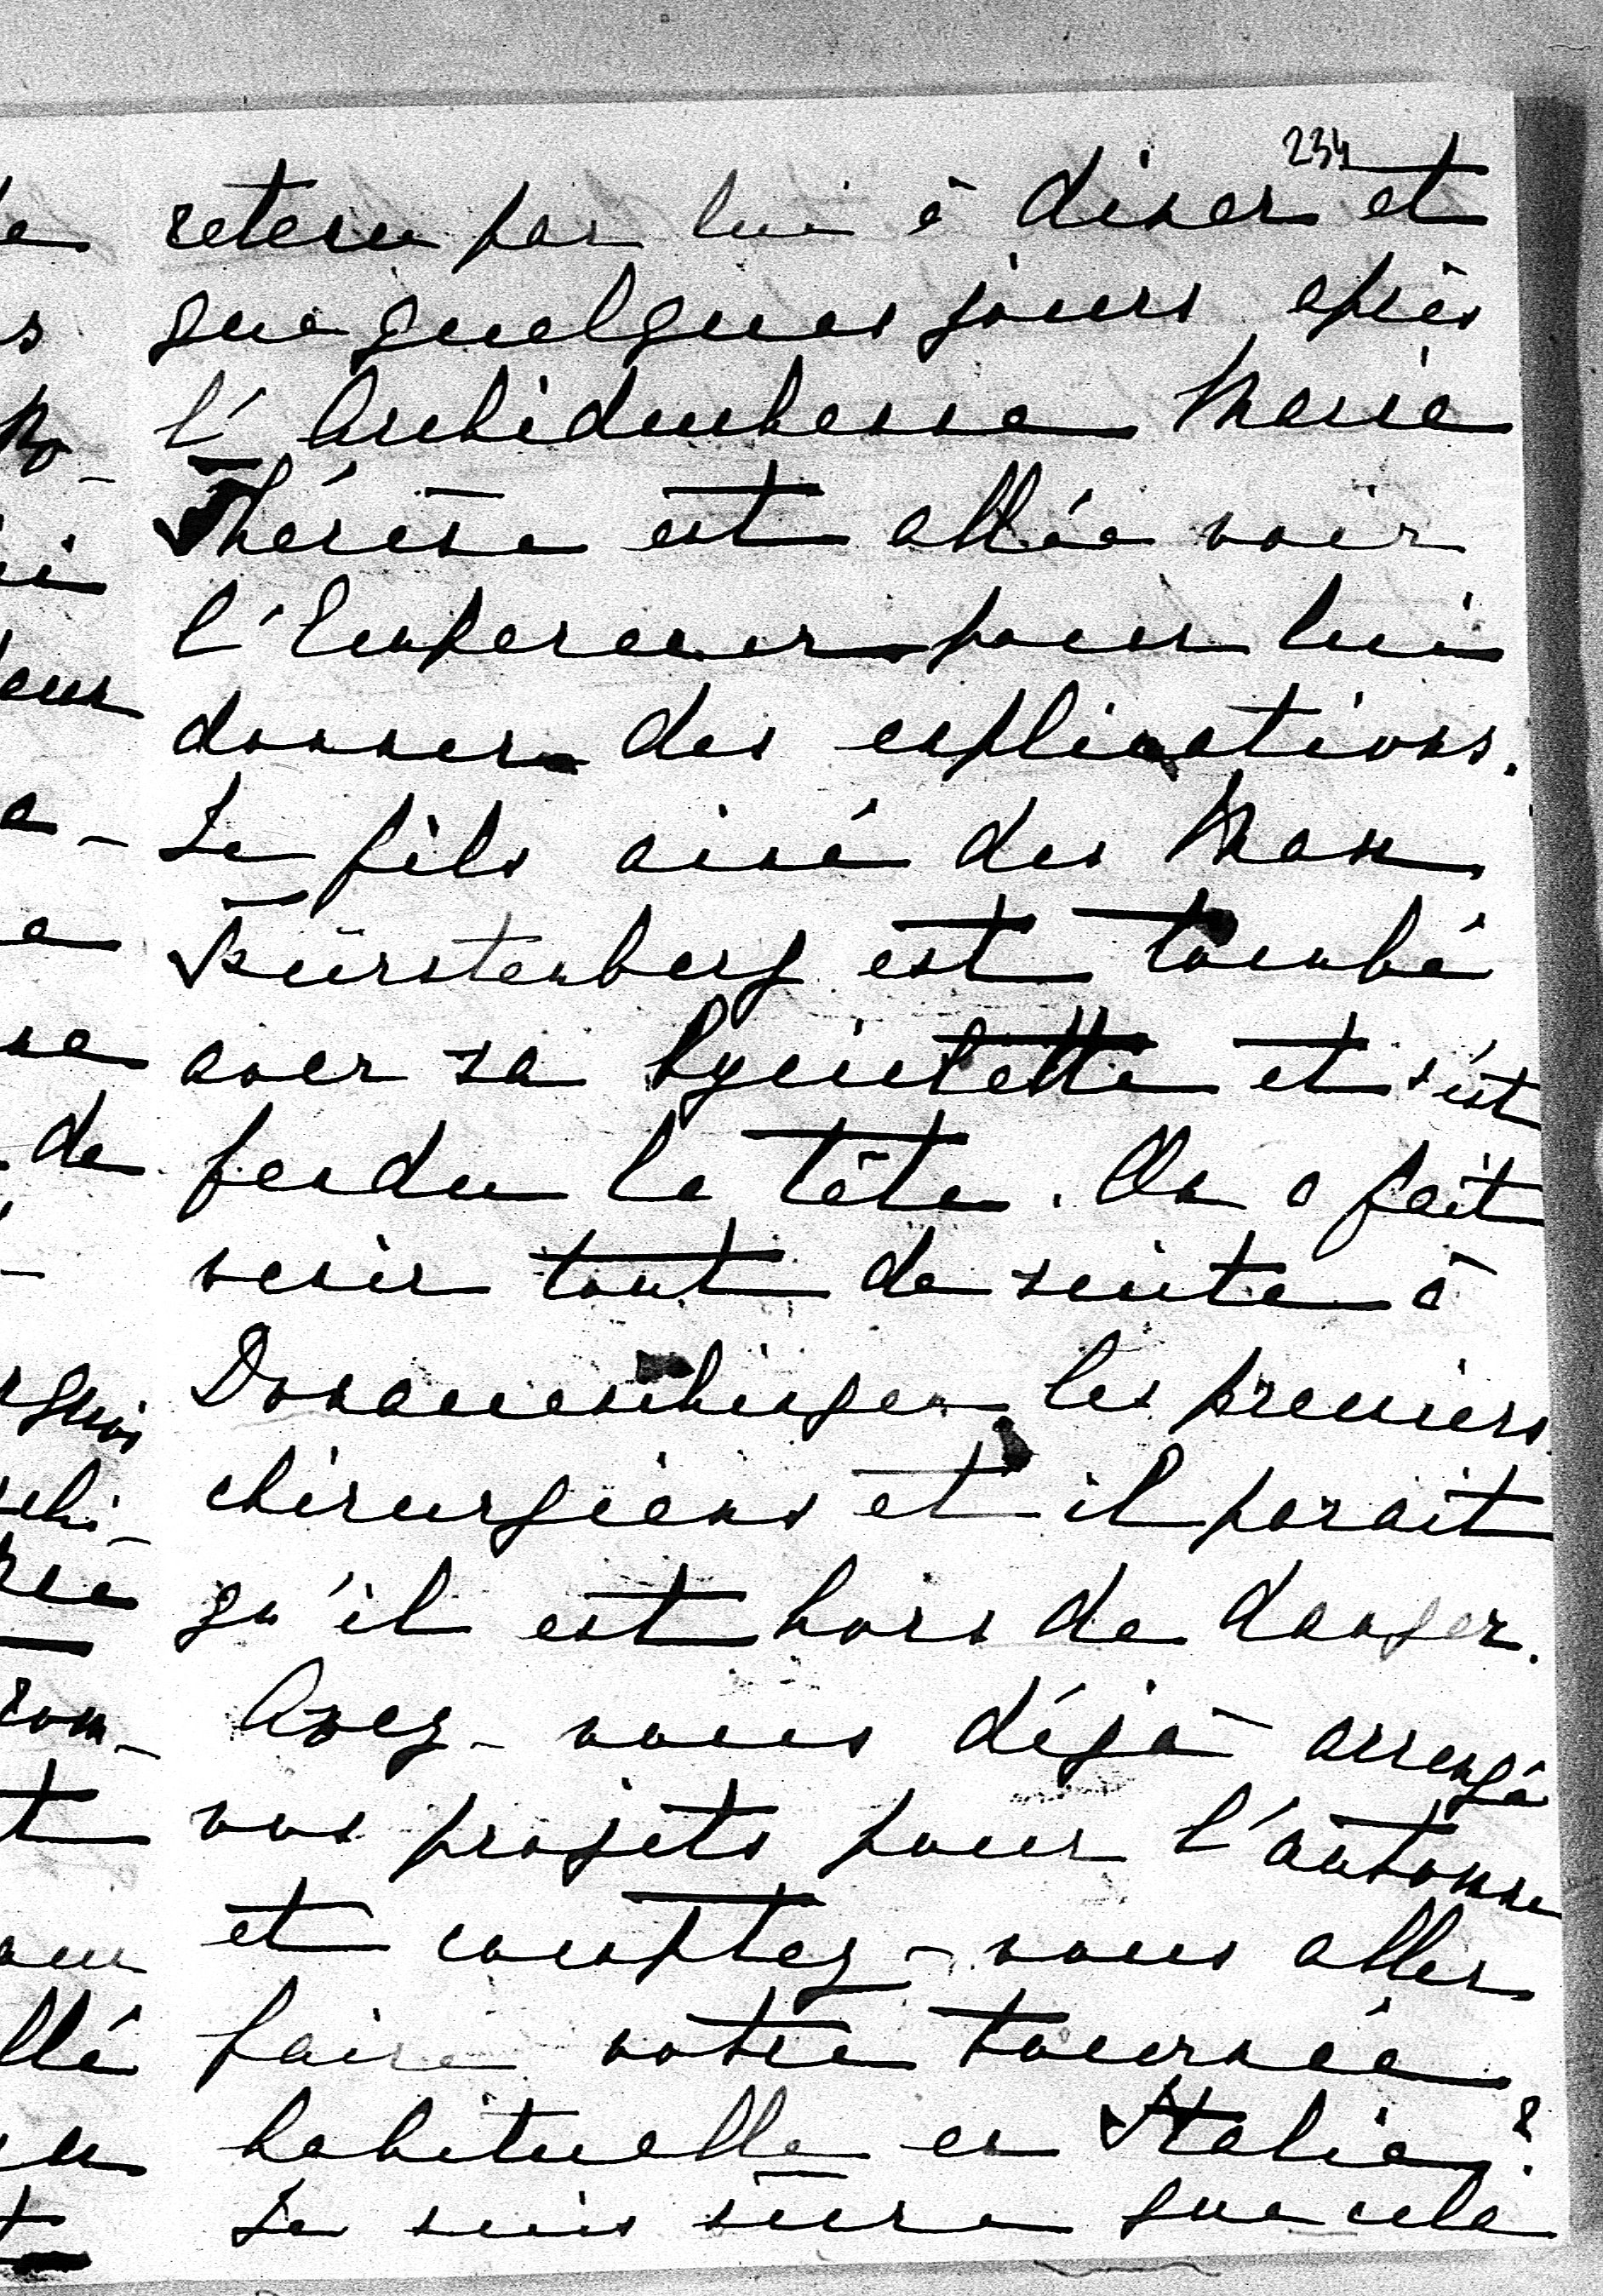 234
retenu par lui à diner et
que quelques jours après
l'Archiduchesse Marie
Thérèse est allée voir
l'Empereur pour lui
donner des explications.
Le fils ainé des Max
Fürstenberg est tombé
avec sa bycicletta et s'est
fendu la tête. On a fait
venir tout de suite à
Donaueschingen les premiers
chirurgiens et il parait
qu'il est hors de danger.
Avez-vous déjà arrangé
vos projets pour l'automne
et comptez-vous aller
faire votre tournée
habituelle en Italie?
Je suis sûre que cela